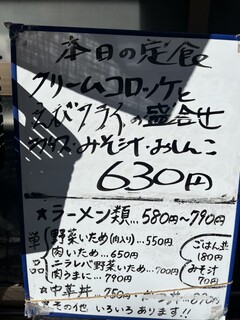 本日の定食
クリームコロッケと
えびフライの盛合せ
ライス・みそ汁・おしんこ
630円
★ラーメン類…580円〜790円
単品
野菜いため(肉入り)…550円
肉いため…650円
ニラレバ野菜いため…700円
肉うまに…790円
ごはん
180円
みそ汁
70円
★中華丼…750円
その他いろいろあります!!